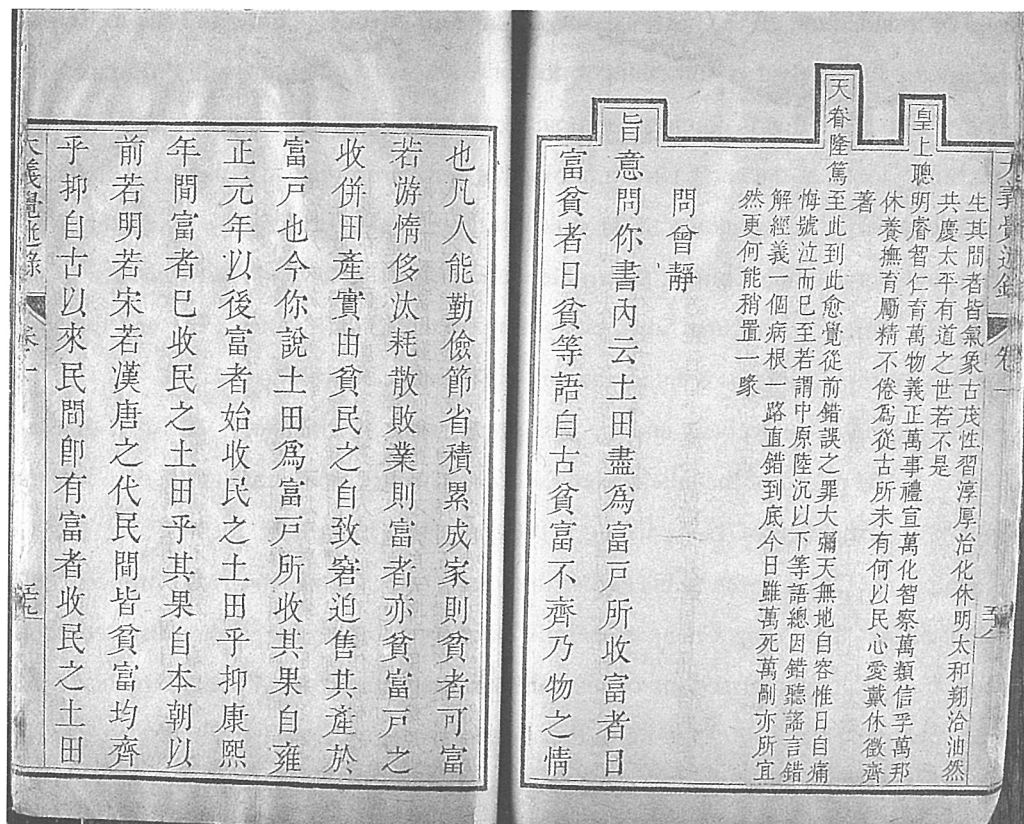 大義覺迷錄 卷一
生其間者皆氣象古茂性習淳厚治化休明太和翔洽油然
共慶太平有道之世若不是
皇上聰明睿智仁育萬物義正萬事禮宣萬化智察萬類信孚萬邦
休養撫育勵精不倦爲從古所未有何以民心愛戴休徵齊
著
天眷隆篤至此到此愈覺從前錯誤之罪大彌天無地自容惟日自痛
悔號泣而已至若謂中原陸沉以下等語總因錯聽謠言錯
解經義一個病根一路直錯到底今日雖萬死萬剮亦所宜
然更何能稍置一喙
問曾靜
旨意問你書內云土田盡爲富戶所收富者日
富貧者日貧等語自古貧富不齊乃物之情
也凡人能勤儉節省積累成家則貧者可富
若游惰侈汰耗散敗業則富者亦貧富戶之
收併田產實由貧民之自致窘迫售其產於
富戶也今你說土田爲富戶所收其果自雍
正元年以後富者始收民之土田乎抑康熙
年間富者已收民之土田乎其果自本朝以
前若明若宋若漢唐之代民間皆貧富均齊
乎抑自古以來民間卽有富者收民之土田
大義覺迷錄 卷一